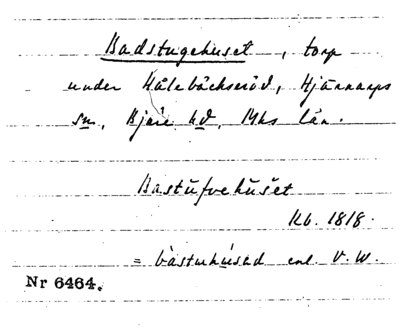 Badstugehuset, torp
under Hålebäckseröd, Hjärnarps
sn., Bjäre hd, Mhs län.
Bastufvehuset
Kb. 1818.
= bàsturhúsad enl. V. W.
Nr 6464.